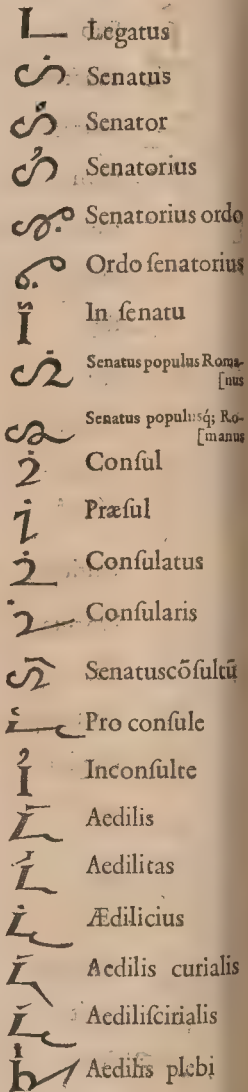 Legatus
Senatus
Senator
Senatorius
Senatorius ordo
Ordo ſenatorius
In ſenatu
Senatus populus Roma-
[nus
Senatus populusq́; Ro-
[manus
Conſul
Præſul
Conſulatus
Conſularis
Senatuscõſultũ
Pro conſule
Inconſulte
Aedilis
Aedilitas
Ædilicius
Aedilis curialis
Aediliſcirialis
Aedilis plebi